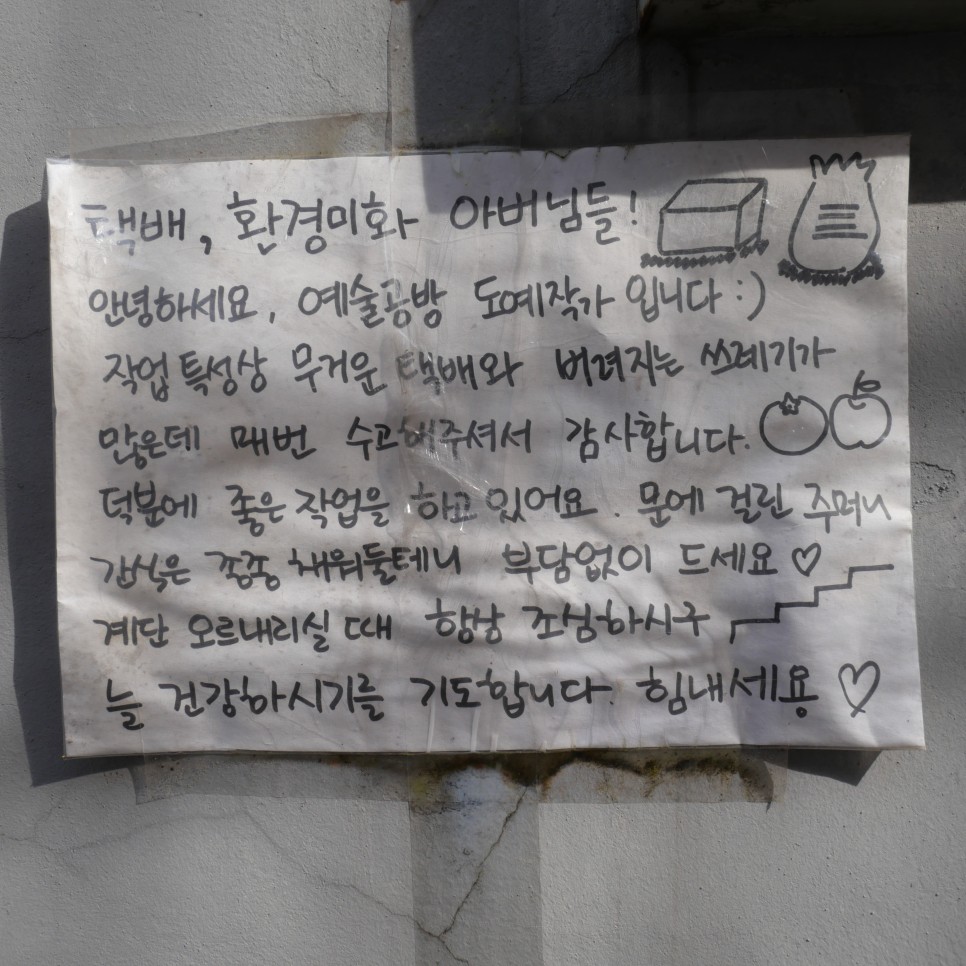 택배, 환경미화 아버님들!
안녕하세요, 예술공방 도예작가 입니다 :)
작업 특성상 무거운 택배와 버려지는 쓰레기가
많은데 매번 수고해주셔서 감사합니다.
덕분에 좋은 작업을 하고 있어요. 문에 걸린 주머니
간식은 종종 채워둘테니 부담없이 드세요♡
계단 오르내리실 때 항상 조심하시구
늘 건강하시기를 기도합니다. 힘내세용 ♡